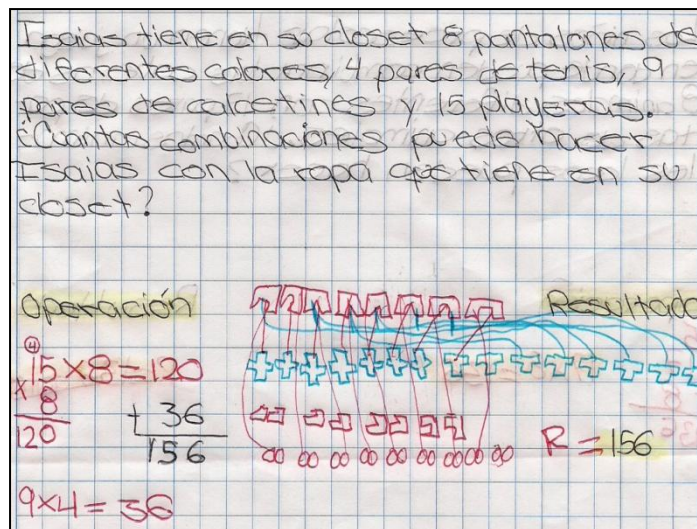 Isaias tiene en su closet 8 pantalones de
diferentes colores, 4 pares de tenis, 9
pares de calcetines y 15 playeras.
¿Cuantas combinaciones puede hacer
Isaias con la ropa que tiene en su
closet?
Operación
Resultado
4
15 x 8 = 120
x 8
120
+ 36
156
R = 156
9 x 4 = 36